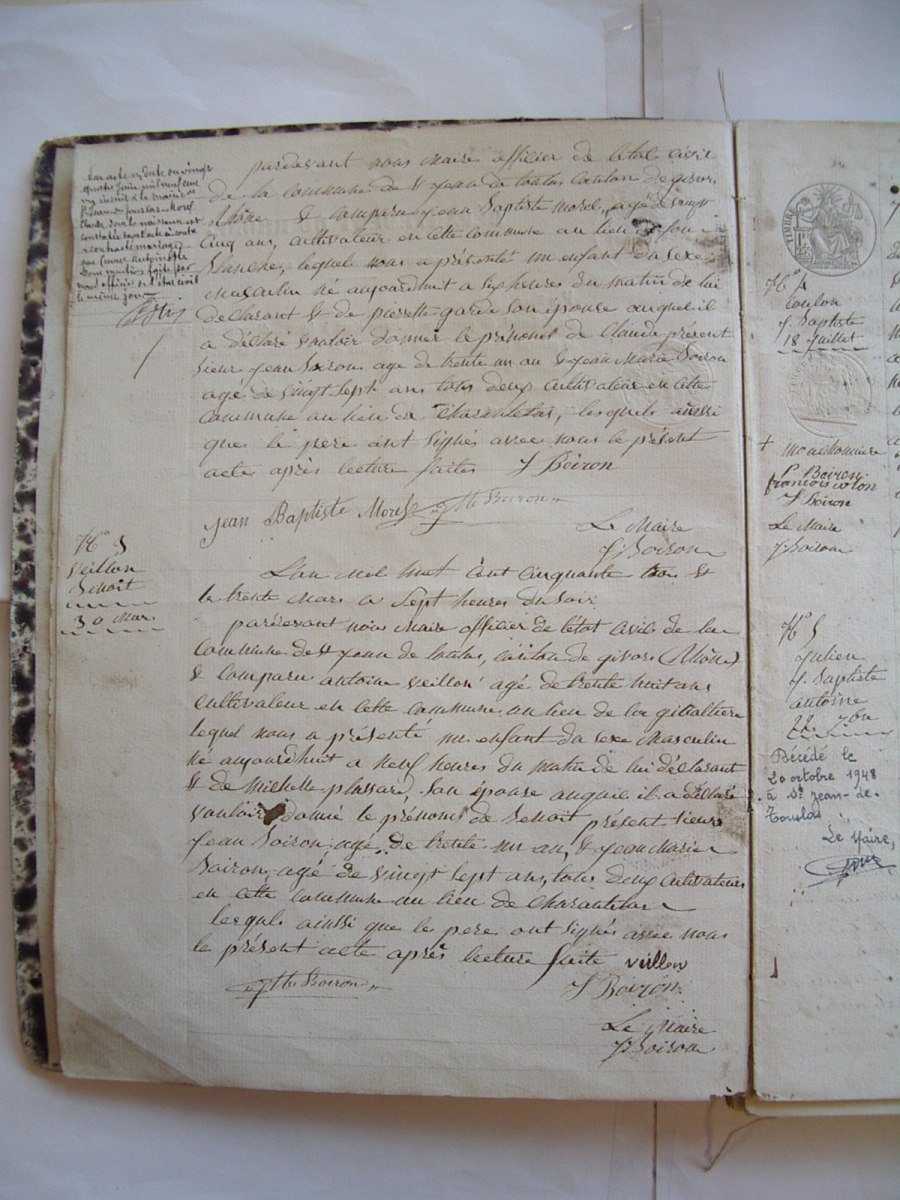 par acte en date du vingt
quatre juin mil neuf cent
un inscrit à la mairie de
Morel
Claude dont la naissance est
constatée dans l'acte ci contre
a contracté mariage
avec Antoinette
Dont mention faite par
nous officier de l'état civil
le même jour
pardevant nous maire officier de létat civil
de la commune de st jean de toulas canton de givors
Rhône & comparu jean Baptiste morel, agé de vingt
cinq ans, cultivateur en cette commune au lieu de font
Blanche, lequel nous a présenté un enfant du sexe
masculin né aujourdhuit a six heures du matin de lui
déclarant & de pierrette garde son épouse auquel il
a déclaré vouloir donner le prénoms de Claude présent
sieur jean Boiron agé de trente un an & jean Marie Boiron
agé de vingt sept ans tous deux cultivateur en cette
commune au lieu de Charantelas, lesquels aussi
que le pere ont signés avec nous le présent
acte après lecture faites J Boiron
jean Baptiste Morel jm Boiron
Le Maire
J Boiron
N° 5
Veillon
Benoit
30 Mars
L'an mil huit cent cinquante trois &
le trente mars a sept heures du soir
pardevant nous maire officier de létat civil de la
commune de st jean de toulas, canton de givors (Rhône)
& comparu antoine veillon agé de trente huit ans
cultivateur en cette commune au lieu de la gibaltière
lequel nous a présenté un enfant du sexe masculin
né aujourdhuit a neuf heures du matin de lui déclarant
& de michelle plassard, son épouse auquel il a déclaré
vouloir donné le prénoms de Benoit présent sieurs
jean Boiron, agé, de trente un an, & jean marie
Boiron, agé de vingt sept ans, tous deux cultivateurs
en cette commune au lieu de Charantelas
lesquls ainssi que le pere ont signés avec nous
le présent acte après lecture faite veillon
jm Boiron J Boiron
Le Maire
J Boiron
TIMBRE
N° 4
Coulon
j. Baptiste
18 juillet
+ mouchonnière
P Boiron
francois colon
J Boiron
Le Maire
J Boiron
N° 5
julien
j. Baptiste
antoine
22
Décédé le
20 octobre 1948
à St Jean-de-
Toulas
Le Maire,